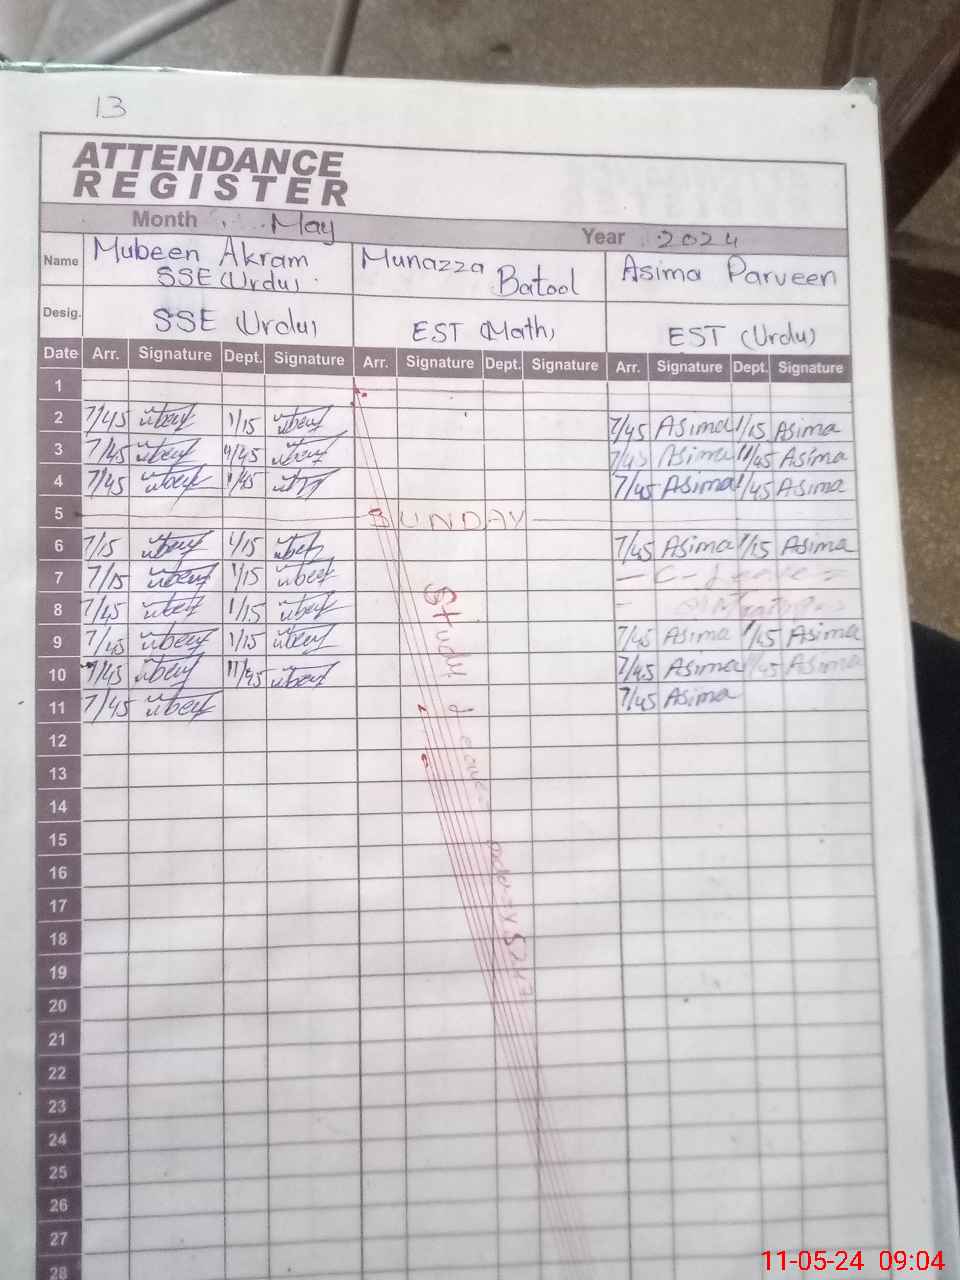 13
ATTENDANCE
REGISTER
Month May Year 2024
Name Mubeen Akram SSE (Urdu) Munazza Batool Asima Parveen
Desig. SSE (Urdu) EST (Math) EST (Urdu)
Date Arr. Signature Dept. Signature Arr. Signature Dept. Signature Arr. Signature Dept. Signature
1
2 7/45 1/15 7/45 Asima 1/15 Asima
3 7/45 11/45 7/45 Asima 11/45 Asima
4 7/45 1/45 7/45 Asima 1/45 Asima
5 SUNDAY
6 7/15 1/15 7/45 Asima 1/15 Asima
7 7/15 1/15 C-Leave
8 7/45 1/15
9 7/45 1/15 7/45 Asima 1/45 Asima
10 7/45 11/45 7/45 Asima 1/45 Asima
11 7/45 7/45 Asima
Study Leave
12
13
14
15
16
17
18
19
20
21
22
23
24
25
26
27
28
11-05-24 09:04